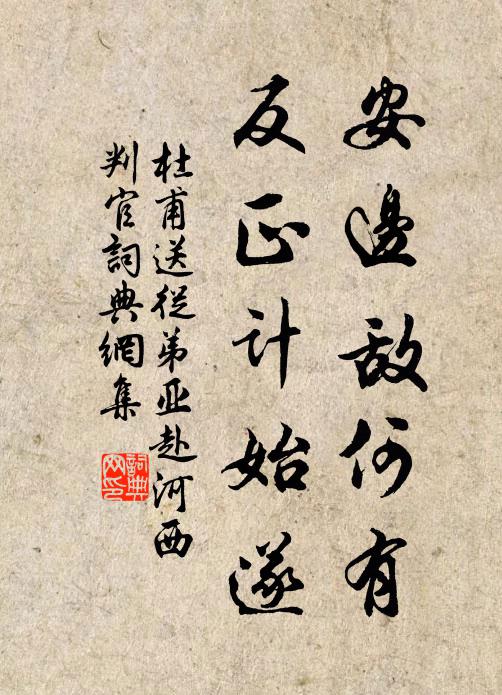 安邊敌何有
反正计始遂
杜甫送從弟亚赴河西
判官詞典網集
詞典網印